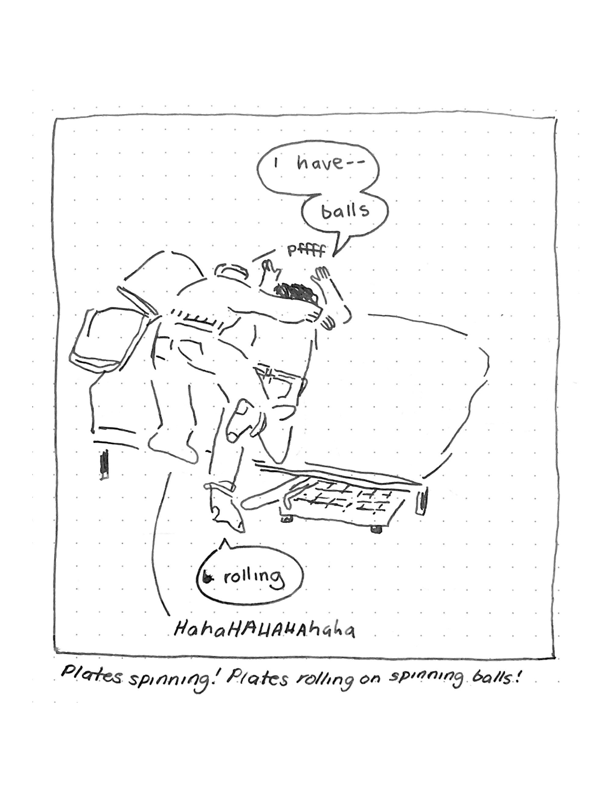 I have--
balls
pffff
rolling
HahaHAHAHAhaha
Plates spinning! Plates rolling on spinning balls!